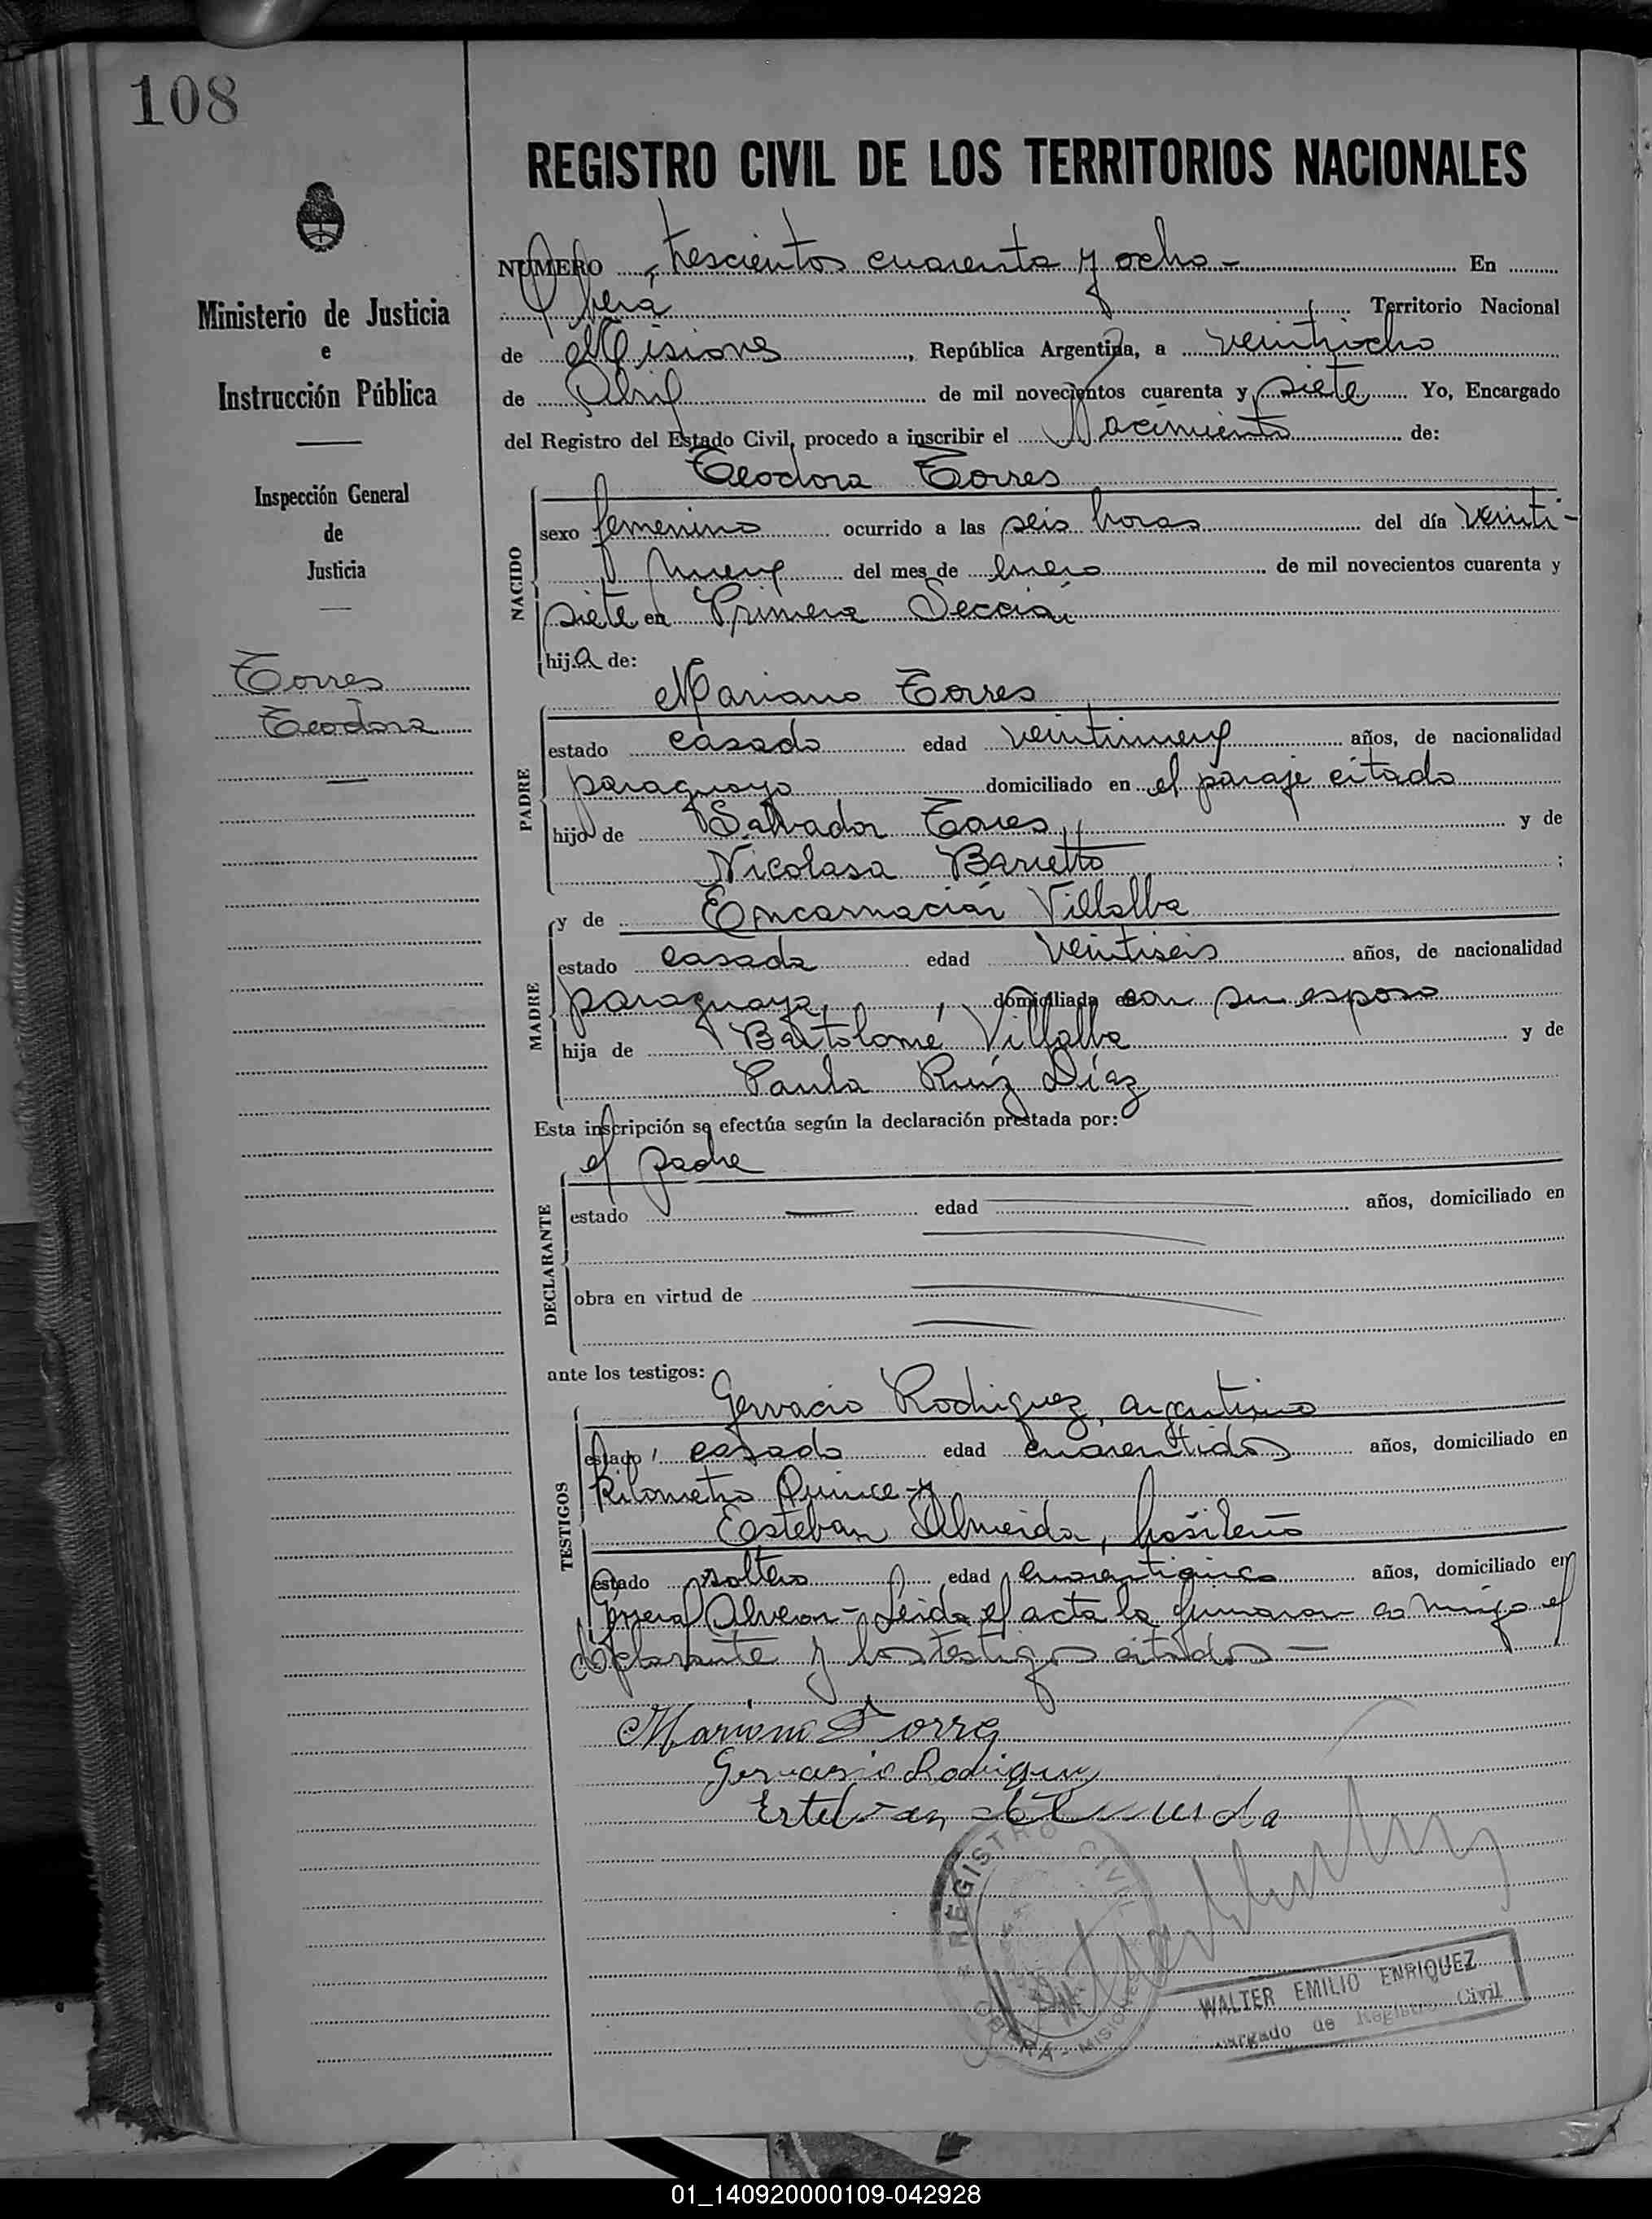 108
REGISTRO CIVIL DE LOS TERRITORIOS NACIONALES
Ministerio de Justicia
e
Instrucción Pública
Inspección General
de
Justicia
Torres
Teodora
NUMERO trescientos cuarenta y ocho - En
Oberá Territorio Nacional
de Misiones, República Argentina, a veintiocho
de Abril de mil novecientos cuarenta y siete Yo, Encargado
del Registro del Estado Civil, procedo a inscribir el Nacimiento de:
Teodora Torres
NACIDO
sexo femenino ocurrido a las seis horas del día veinti-
nueve del mes de Enero de mil novecientos cuarenta y
siete en Primera Sección
hija de:
Mariano Torres
PADRE
estado casado edad veintinueve años, de nacionalidad
paraguayo domiciliado en el paraje citado
hijo de Salvador Torres y de
Nicolasa Barretto ;
MADRE
y de Encarnación Villalba
estado casada edad veintiseis años, de nacionalidad
paraguaya, domiciliada con su esposo
hija de Bartolomé Villalba y de
Paula Ruíz Díaz
Esta inscripción se efectúa según la declaración prestada por:
el padre
DECLARANTE
estado edad años, domiciliado en
obra en virtud de
ante los testigos:
Gervacio Rodriguez, argentino
TESTIGOS
estado casado edad cuarentidos años, domiciliado en
Kilometro Quince y
Esteban Almeida, brasileño
estado soltero edad cuarenticinco años, domiciliado en
General Alvear - Leida el acta la firmaron conmigo el
declarante y los testigos citados -
Mariano Torres
Gervasio Rodriguez
Estevan Almeida
REGISTRO CIVIL
OBERA - MISIONES
WALTER EMILIO ENRIQUEZ
Encargado de Registro Civil
01_140920000109-042928